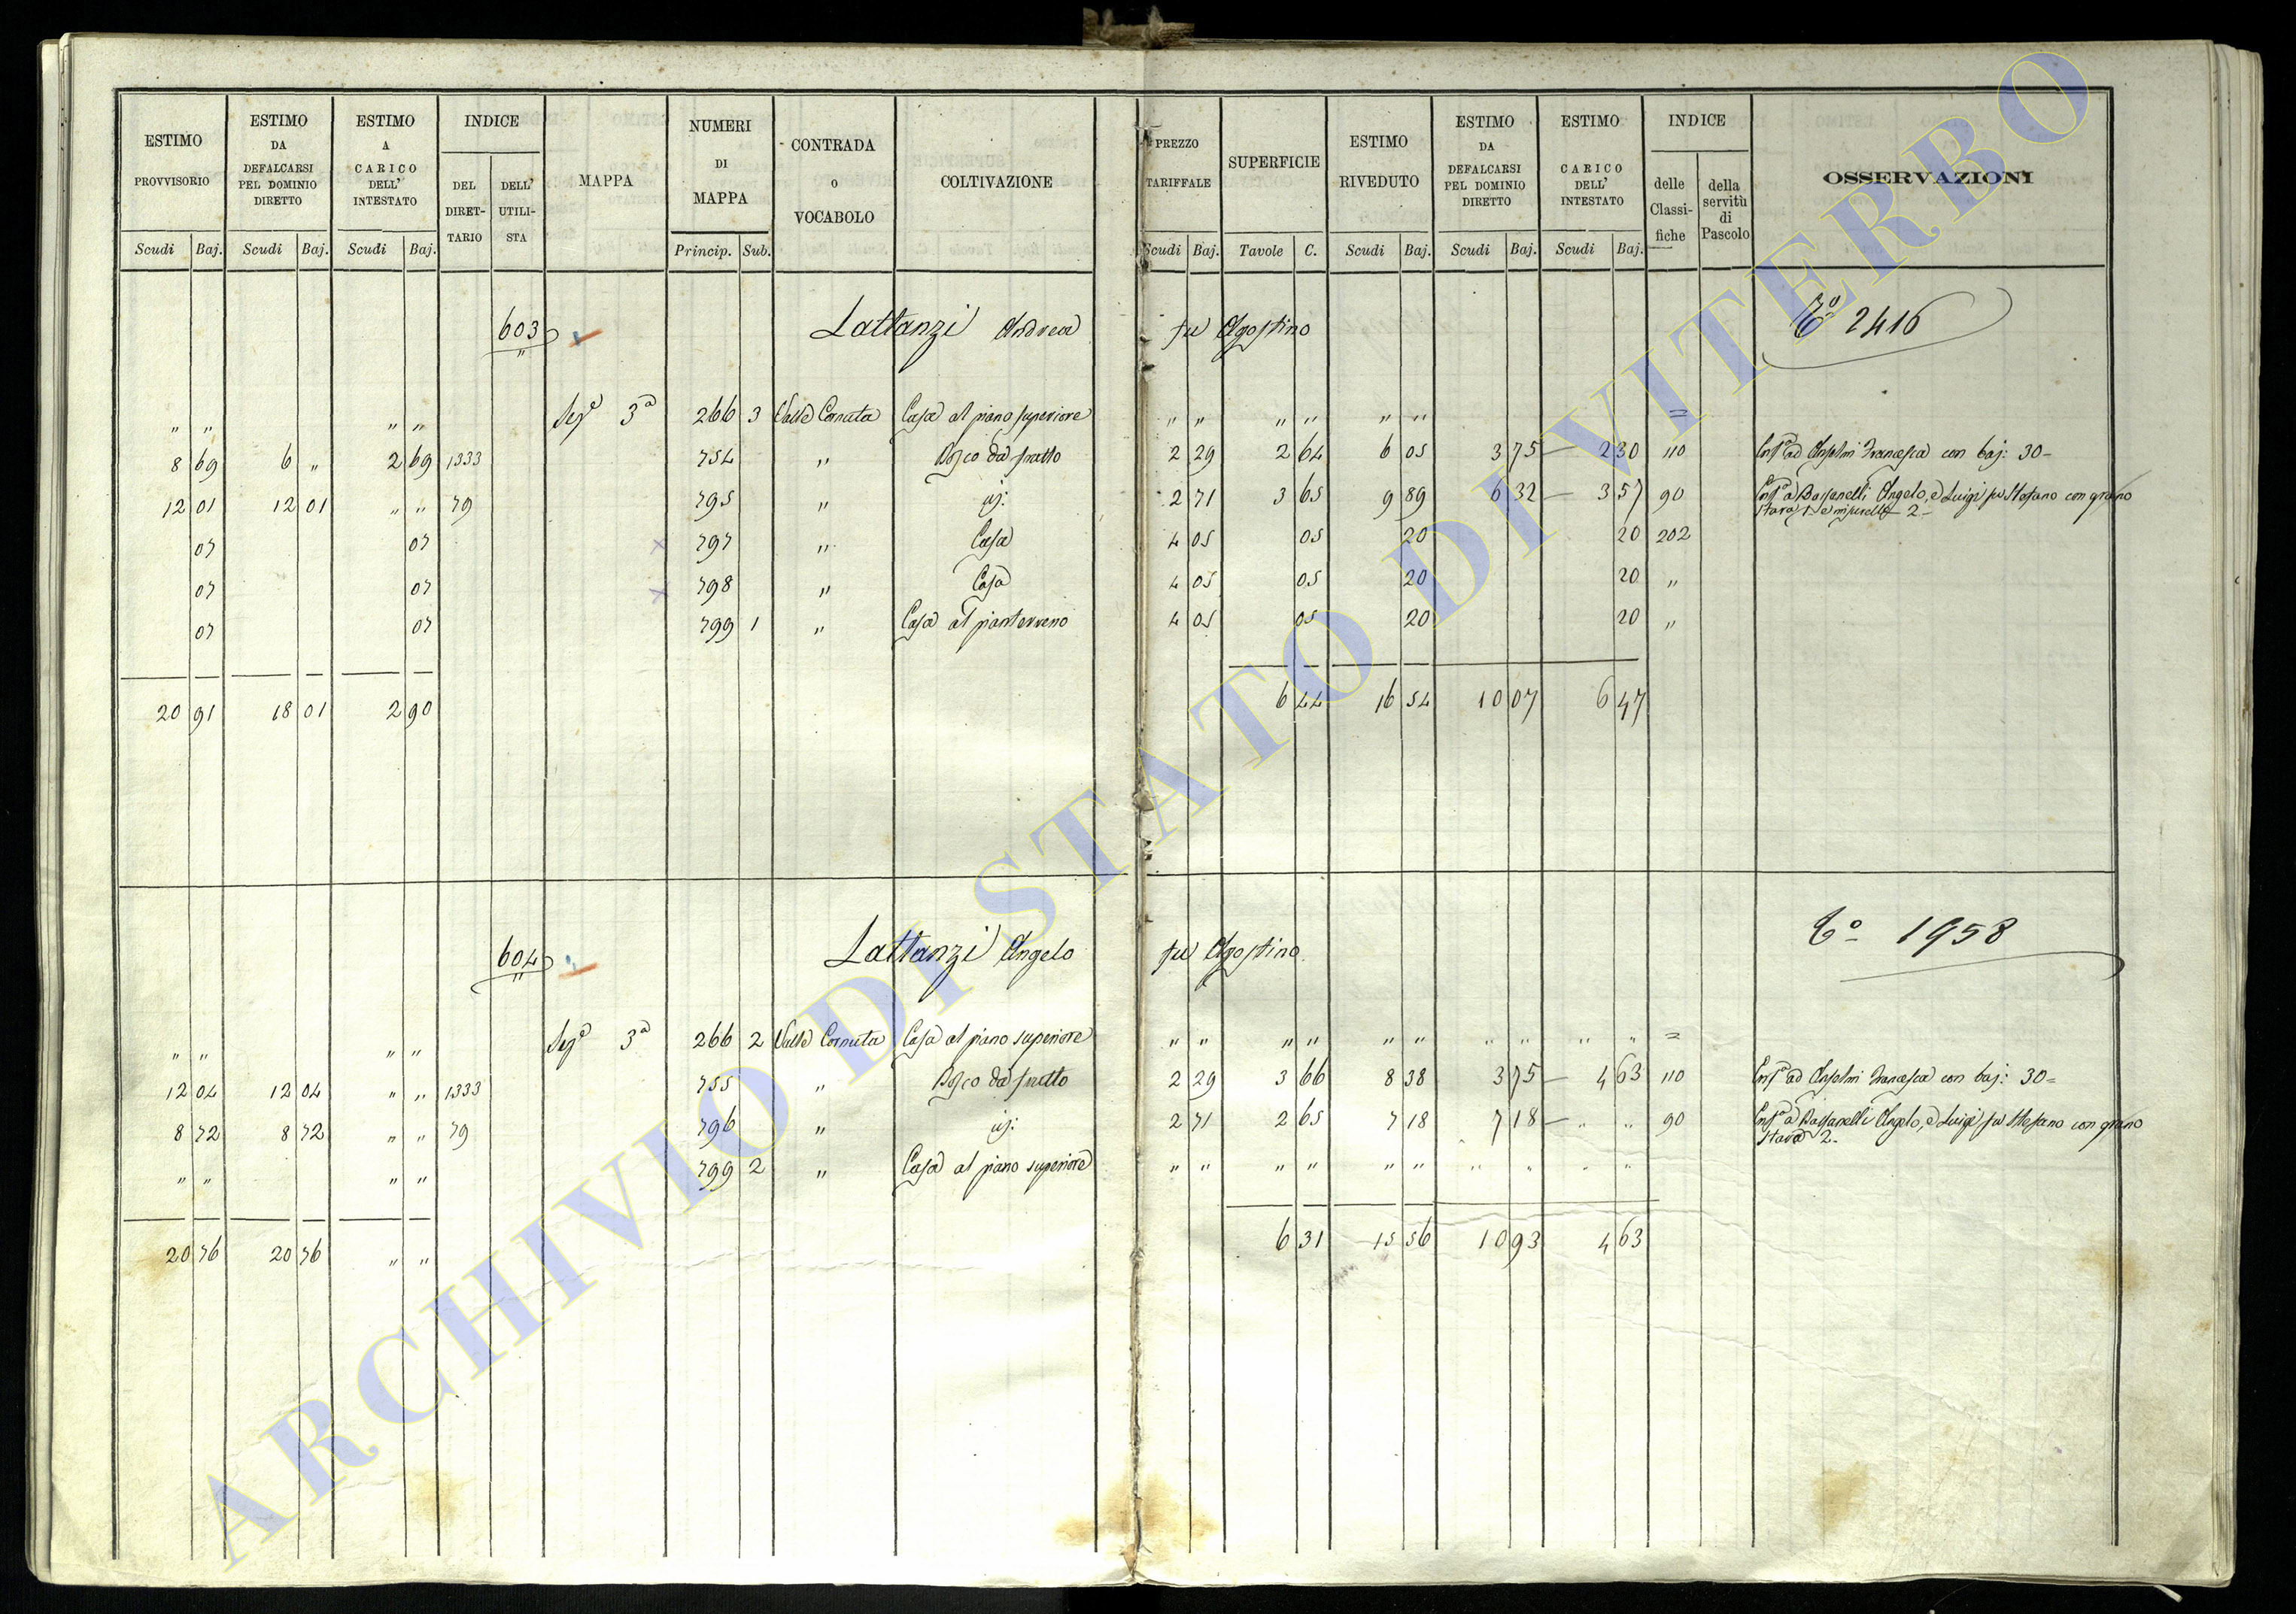 ESTIMO PROVVISORIO Scudi Baj. | ESTIMO DA DEFALCARSI PEL DOMINIO DIRETTO Scudi Baj. | ESTIMO A CARICO DELL' INTESTATO Scudi Baj. | INDICE DEL DIRETTARIO DELL' UTILISTA | MAPPA | NUMERI DI MAPPA Princip. Sub. | CONTRADA O VOCABOLO | COLTIVAZIONE | PREZZO TARIFFALE Scudi Baj. | SUPERFICIE Tavole C. | ESTIMO RIVEDUTO Scudi Baj. | ESTIMO DA DEFALCARSI PEL DOMINIO DIRETTO Scudi Baj. | ESTIMO CARICO DELL' INTESTATO Scudi Baj. | INDICE delle Classifiche della servitù di Pascolo | OSSERVAZIONI
603 Lattanzi Andrea fu Agostino 2416
" " " " 3ª 266 3 Valle Cornuta Casa al piano superiore " " " " " " =
8 69 6 " 2 69 1333 754 " Bosco da frutto 2 29 2 64 6 05 3 75 — 2 30 110 ad Anselmi Francesca con baj: 30 –
12 01 12 01 " " 79 795 " 2 71 3 65 9 89 6 32 — 3 57 90 Angelo, e Luigi fu Stefano con grano
2 –
07 07 797 " Casa 4 05 05 20 20 202
07 07 798 " Casa 4 05 05 20 20 "
07 07 799 1 " Casa al pianterreno 4 05 05 20 20 "
20 91 18 01 2 90 6 44 16 54 10 07 6 47
604 Lattanzi Angelo fu Agostino 1958
" " " " 3ª 266 2 Valle Cornuta Casa al piano superiore " " " " " " " " " " =
12 04 12 04 " " 1333 755 " Bosco da frutto 2 29 3 66 8 38 3 75 — 4 63 110 ad Anselmi Francesca con baj: 30 =
8 72 8 72 " " 79 796 " 2 71 2 65 7 18 7 18 — " " 90 Angelo, e Luigi fu Stefano con grano
2 –
" " " " 799 2 " Casa al piano superiore " " " " " " " " " "
20 76 20 76 " " 6 31 15 56 10 93 4 63
ARCHIVIO DI STATO DI VITERBO